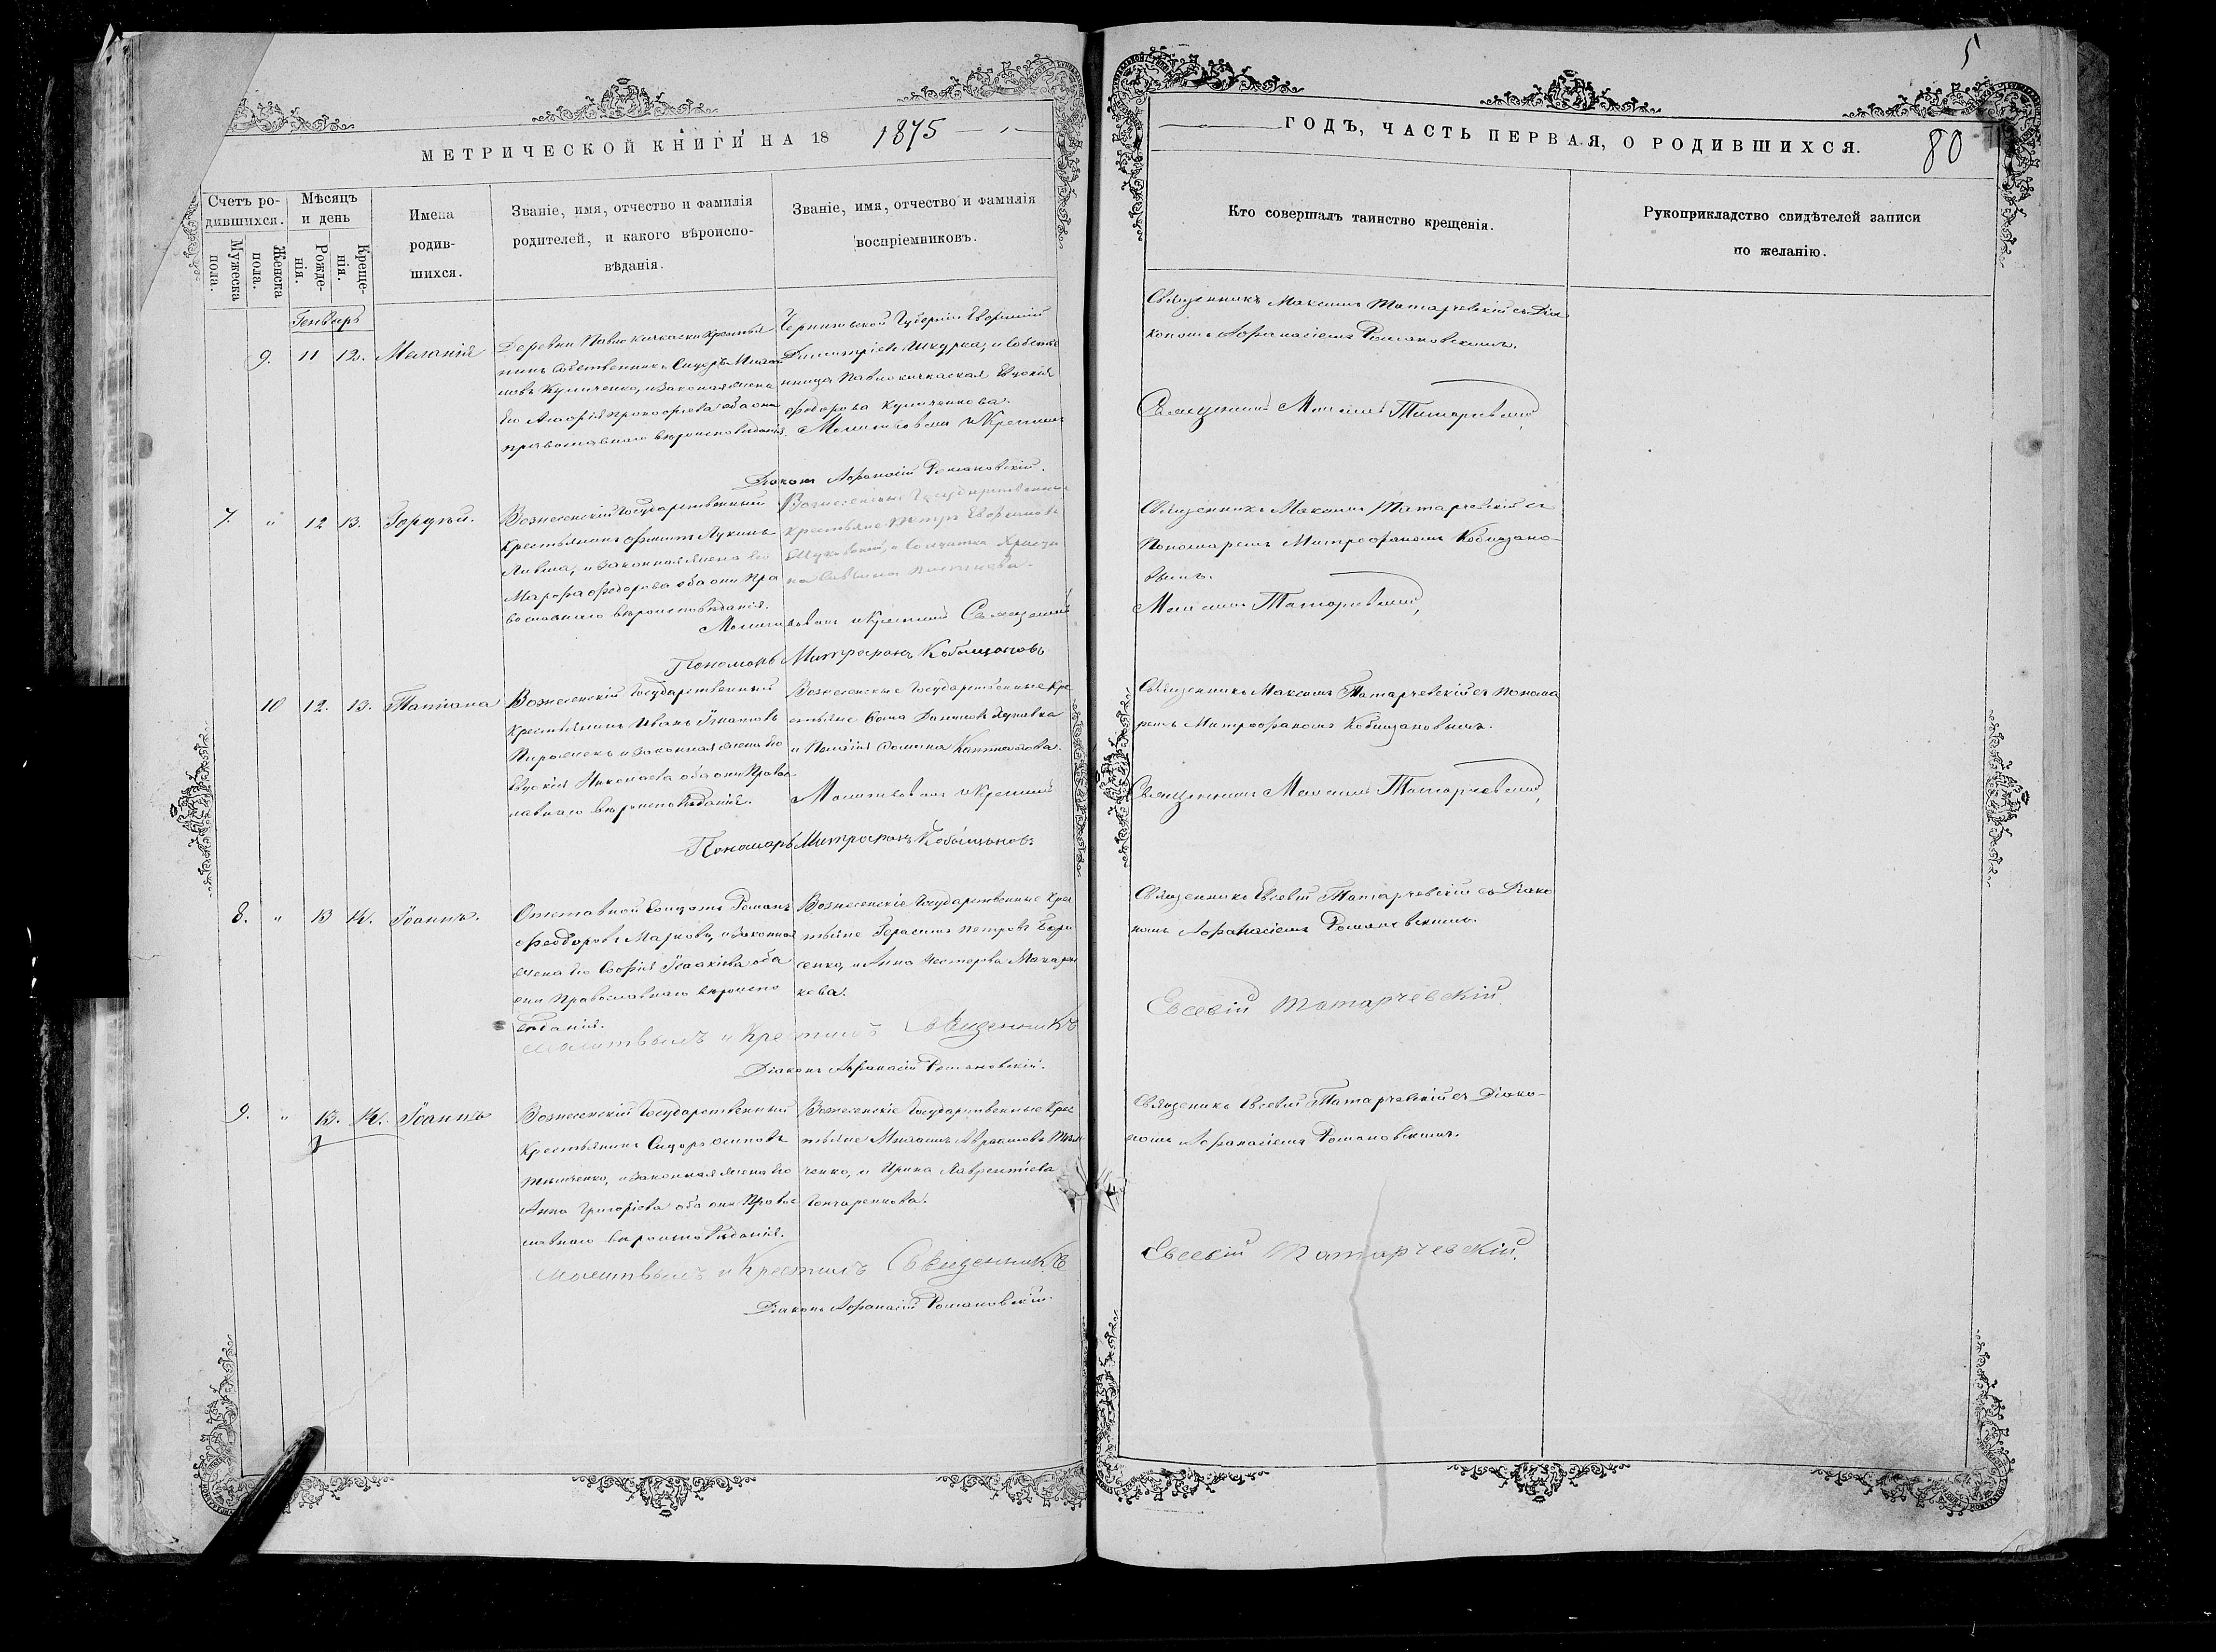 5
МЕТРИЧЕСКОЙ КНИГИ НА 18 1875
ГОДЪ, ЧАСТЬ ПЕРВАЯ, О РОДИВШИХСЯ.
80
Счетъ ро-
дившихся.
Мужеска
пола.
Женска
пола.
Мѣсяцъ
и день
Рожде-
нія.
Креще-
нія.
Имена
родив-
шихся.
Званіе, имя, отчество и фамилія
родителей, и какого вѣроиспо-
вѣданія.
Званіе, имя, отчество и фамилія
воспріемниковъ.
Кто совершалъ таинство крещенія.
Рукоприкладство свидѣтелей записи
по желанію.
Генварь
9. 11 12. Меланія
Деревни Павло кичкаски Крестья
нинъ Собственникъ Сидоръ
Куличенко, и законная жена
Его Агафія Прокофіева оба они
православнаго вѣроисповѣданія.
Черниговской Губерніи Евфимій
Димитріевъ Шкурка, и Собстве
нница Павлокичкаская Евдокія
Федорова Куличенкова.
Молитвовалъ и Крестилъ
Діаконъ Афанасій Романовскій.
Священникъ Максимъ Татарчевскій съ Діа
кономъ Афанасіемъ Романовскимъ.
Священникъ Максимъ Татарчевскій
7. " 12 13. Гордѣй.
Вознесенскій Государственный
Крестьянинъ Филипъ Лукинъ
и законная жена его
Марфа Федорова оба они Пра
вославнаго вѣроисповѣданія.
Вознесенскіе Государственные
Крестьяне Петръ Евфимовъ
и Солдатка
Молитвовалъ и Крестилъ Священникъ
Пономарь Митрофанъ Кобызановъ
Священникъ Максимъ Татарчевскій съ
Пономаремъ Митрофаномъ Кобызано-
вымъ.
Максимъ Татарчевскій
10 12. 13. Татіана
Вознесенскій Государственный
Крестьянинъ Иванъ Игнатовъ
Пирожекъ и законная жена Его
Евдокія Николаева оба они Правос
лавнаго вѣроисповѣданія.
Вознесенскіе Государственные Кре
стьяне Фома Даниловъ
и Пелагія Фомина
Молитвовалъ и Крестилъ
Пономарь Митрофанъ Кобызановъ
Священникъ Максимъ Татарчевскій съ Понома
ремъ Митрофаномъ Кобызановымъ.
Священникъ Максимъ Татарчевскій
8. " 13 14. Іоаннъ.
Отставной Солдатъ Романъ
Феодоровъ и законная
жена его Софія Исаакіева оба
они Православнаго вѣроиспо
вѣданія.
Вознесенскіе Государственные Крес
тьяне Герасимъ Петровъ
сенко, и Анна Нестерова Макарен
кова.
Молитвовалъ и Крестилъ Священникъ
Діаконъ Афанасій Романовскій.
Священникъ Евсевій Татарчевскій съ Діако
номъ Афанасіемъ Романовскимъ.
Евсевій Татарчевскій.
9. " 13. 14. Іоаннъ
Вознесенскій Государственный
Крестьянинъ Сидоръ Осиповъ
и законная жена Его
Анна Григоріева оба они Правос
лавнаго вѣроисповѣданія.
Вознесенскіе Государственные Крес
тьяне Михаилъ Абрамовъ
ченко, и Ирина Лаврентіева
Гончаренкова.
Молитвовалъ и Крестилъ Священникъ
Діаконъ Афанасій Романовскій.
Священникъ Евсевій Татарчевскій съ Діако-
номъ Афанасіемъ Романовскимъ.
Евсевій Татарчевскій.